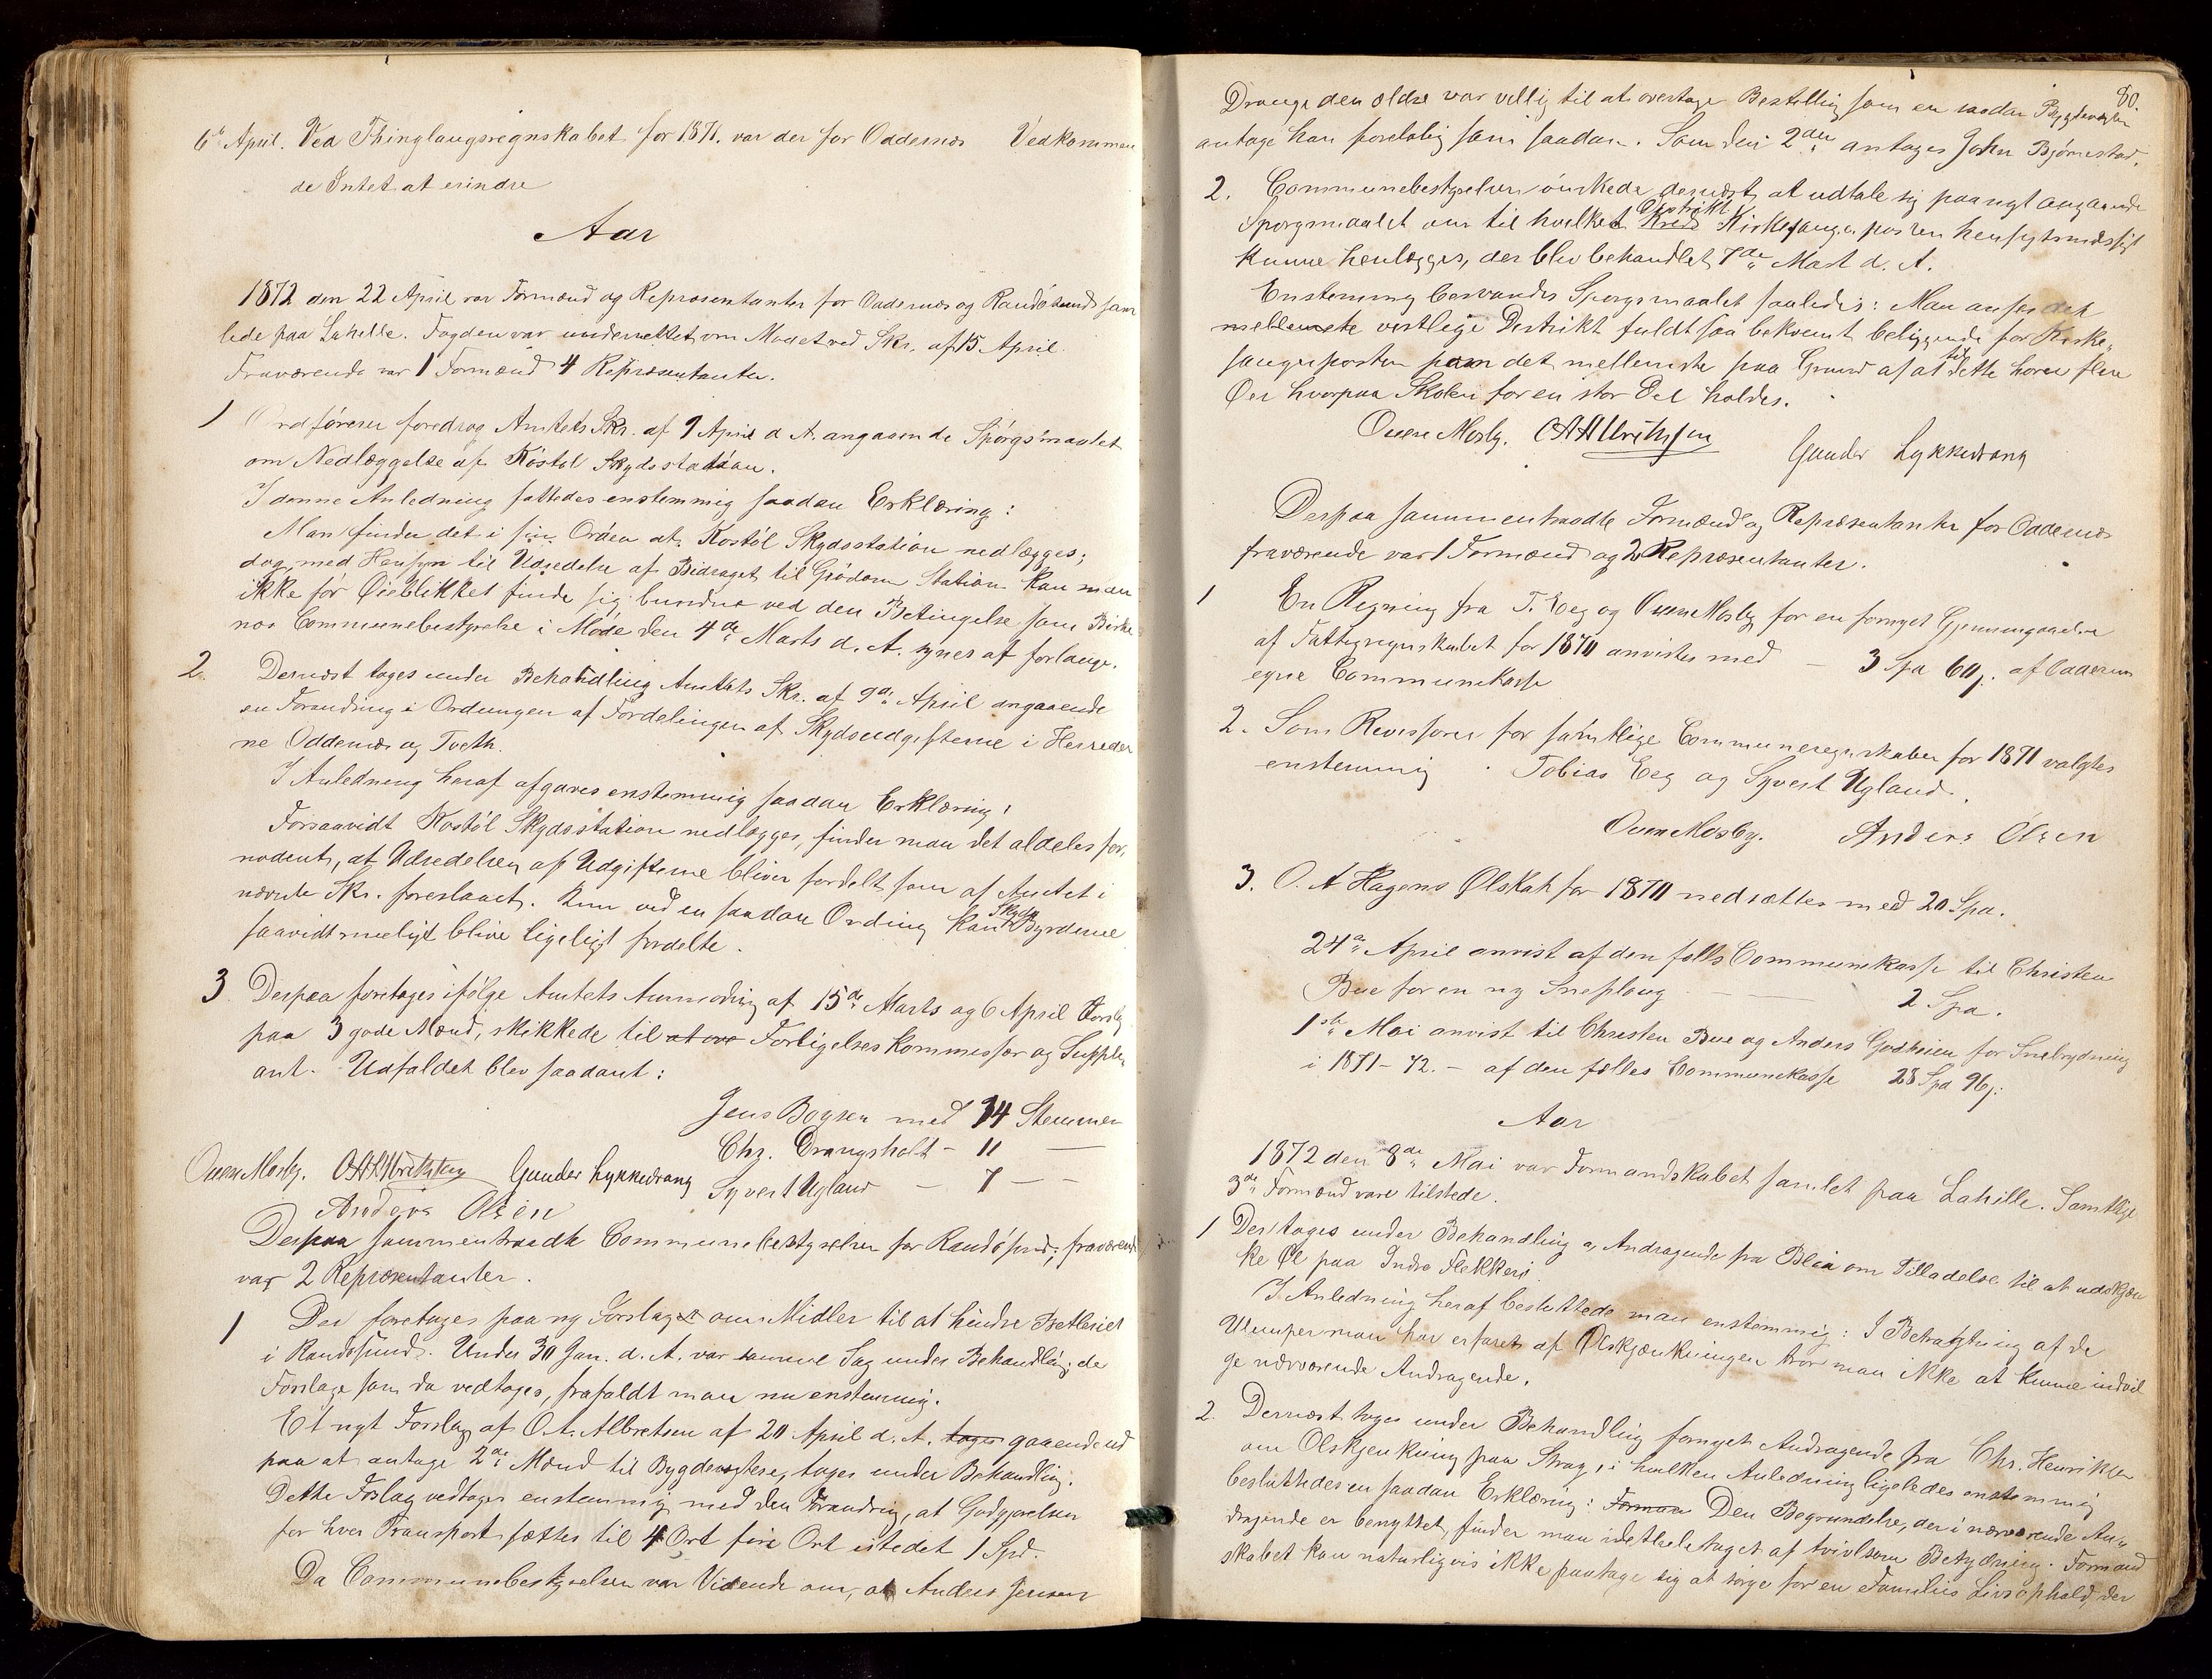 6te April. Ved Thinglaugsregnskabet for 1871. var der for Oddernæs Vedkommen
de Intet at erindre
Aar
1872 den 22 April var Formænd og Repræsentanter for Oddernæs og Randøsund sam
lede paa Lahelle. Fogden var underrettet om Mødet ved Skr. af 15 April.
Fraværende var 1 Formænd 4 Repræsentanter.
1 Ordfører foredrog Amtets Skr. af 9 April d. A. angaaende Spørgsmaalet
om Nedlæggelse af Kostøl Skydsstation.
I denne Anledning fattedes enstemmig saadan Erklæring:
Man finder det i sin Orden at Kostøl Skydsstation nedlægges;
dog med Hensyn til Udredelse af Bidraget til Grødom Station kan man
ikke for Øieblikket finde sig bunden ved den Betingelse som Birke
næs Communebestyrelse i Møde den 4de Marts d. A. synes at forlange.
2. Dernæst toges under Behandling Amtets Skr. af 9de April angaaende
en Forandring i Ordningen af Fordelingen af Skydsudgifterne i Herreder
ne Oddernæs og Tveth.
I Anledning heraf afgaves enstemmig saadan Erklæring:
Forsaavidt Kostøl Skydsstation nedlægges, finder man det aldeles for,
nødent, at Udredelsen af Udgifterne bliver fordelt som af Amtet i
nævnte Skr. foreslaaet. Kun ved en saadan Ordning kan Skyds Byrderne
saavidt mueligt blive ligeligt fordelte.
3 Derpaa foretoges ifølge Amtets Anmodning af 15de Marts og 6 April Forslag
paa 3 gode Mænd, skikkede til at ove Forligelseskommissær og Supple
ant. Udfaldet blev saadant:
Jens Bogsen med 14 Stemmer
Chr. Drangsholt - 11 —
Syvert Ugland — 7 — —
Ouen Mosby. OAAlbrethsen Gunder Lykkedrang
Anders Olsen
Derpaa sammentraadte Communebestyrelsen for Randøsund; fraværende
var 2 Repræsentanter.
1 Der foretoges paa ny Forslaget om Midler til at hindre Betleriet
i Randøsund. Under 30 Jan. d. A. var samme Sag under Behandling; de
Forslage som da vedtoges, frafaldt man nu enstemmig.
Et nyt Forslag af O. A. Albretsen af 20 April d. A. toges gaaende ud
paa at antage 2de Mænd til Bygdevægtere, toges under Behandling.
Dette Forslag vedtoges enstemmig med den Forandring, at Godtgjørelsen
for hver Transport sættes til 4 Ort fire Ort istedet 1 Spd.
Da Communebestyrelsen var Vidende om, at Anders Jensen
80.
Drange den ældre var villig til at overtage Bestilling som en saadan Bygdevægter
antoges han foreløbig som saadan. Som den 2den antages John Bjørnestad.
2. Communebestyrelsen ønskede dernæst at udtale sig paa nyt angaaende
Spørgsmaalet om til hvilket Distrikt Kreds Kirkesangerposten hensigtsmæssigt
kunne henlægges, der blev behandlet 7de Mart d. A.
Enstemmig besvaredes Spørgsmaalet saaledes: Man anser det
mellemste vestlige Distrikt fuldt saa bekvemt beliggende for Kirke,
sangerposten som det mellemste paa Grund af at til dette hører flere
Øer hvorpaa Skolen for en stor Del holdes.
Ouen Mosby. OAAlbrethsen Gunder Lykkedrang
Derpaa sammentraadte Formænd og Repræsentanter for Oddernæs
fraværende var 1 Formænd og 2 Repræsentanter.
1 En Regning fra T. Eeg og Ouen Mosby for en fornyet Gjennemgaaelse
af Fattigregnskabet for 1870 anvistes med — 3 Spd 60 s. af Oddernæs
egne Communekasse
2. Som Revisorer for samtlige Communeregnskaber for 1871 valgtes
enstemmig Tobias Eeg og Syvert Ugland.
Ouen Mosby. Anders Olsen
3. O. A Hagens Ølskat for 1870 nedsættes med 20 Spd.
24de April anvist af den fælls Communekasse til Christen
Bue for en ny Sneploug — — 2 Spd.
1ste Mai anvist til Christen Bue og Anders Godheien for Snebrydning
i 1871-72. - af den fælles Communekasse 28 Spd 96 s.
Aar
1872 den 8de Mai var Formandskabet samlet paa Lahille. Samtlige
3de Formænd vare tilstede.
1 Der toges under Behandling a, Andragende fra Bleia om Tilladelse til at udskjæn
ke Øl paa Indre Flekkerø.
I Anledning heraf besluttede man enstemmig: I Betragtning af de
Ulemper man har erfaret af Ølskjænkningen tror man ikke at kunne indvil
ge nærværende Andragende.
2. Dernæst toges under Behandling fornyet Andragende fra Chr. Henriksen
om Ølskjenkning paa Stray, i hvilken Anledning ligeledes enstemmig
besluttedes en saadan Erklæring: Forman Den Begrundelse, der i nærværende An,
dragende er benyttet, finder man idethele taget af tvivlsom Betydning. Formand
skabet kan naturligvis ikke paatage sig at sørge for en Families Livsophold, der